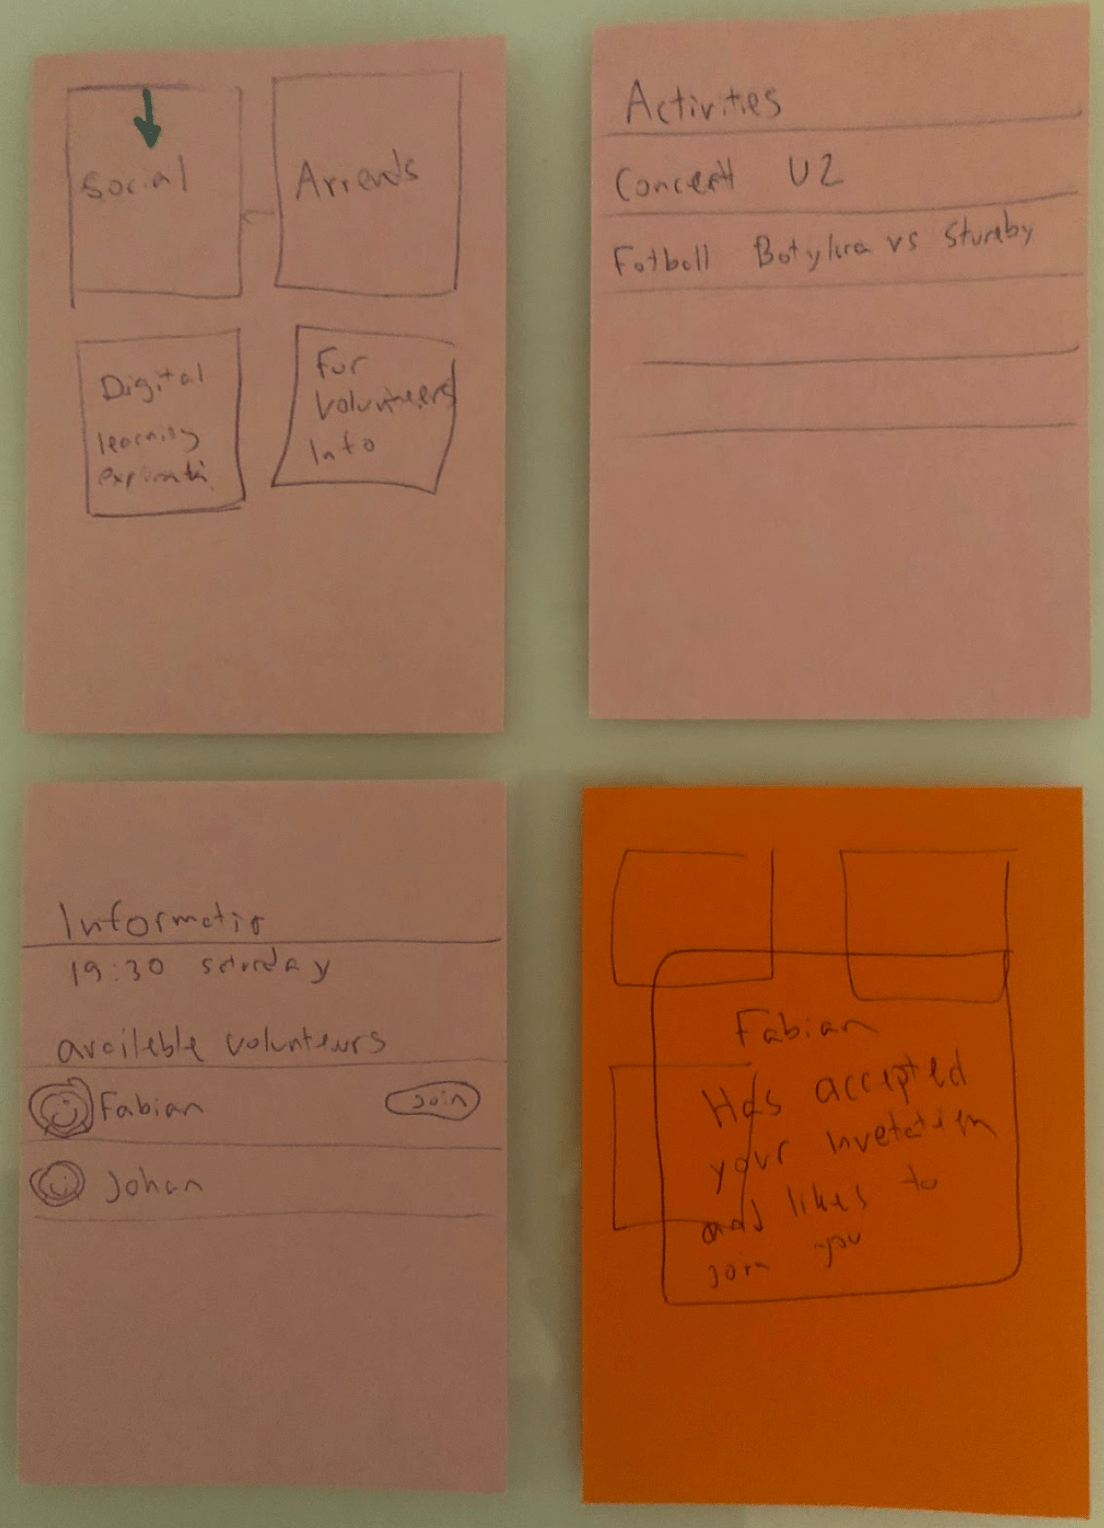 Social
Arrends
Digital
learning
For
Volunteers
Info
Activities
Concert U2
Fotboll Botylkra vs Stureby
Informatio
19:30 saturday
available volunteurs
Fabian
Join
Johan
Fabian
Has accepted
your invetation
and likes to
join you